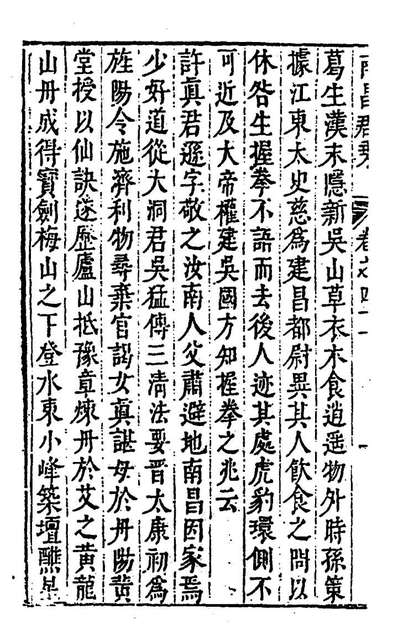 南昌郡乘 卷之四十一
葛生漢末隱新吳山草衣木食逍遥物外時孫策
據江東太史慈爲建昌都尉異其人飲食之問以
休咎生握拳不語而去後人迹其處虎豹環側不
可近及大帝權建吳國方知握拳之兆云
許眞君遜字敬之汝南人父肅避地南昌因家焉
少好道從大洞君吳猛傳三清法要晉太康初爲
旌陽令施濟利物尋棄官謁女眞諶母於丹陽黄
堂授以仙訣遂歷廬山抵豫章煉丹於艾之黄龍
山丹成得寶劍梅山之下登水東小峰築壇醮